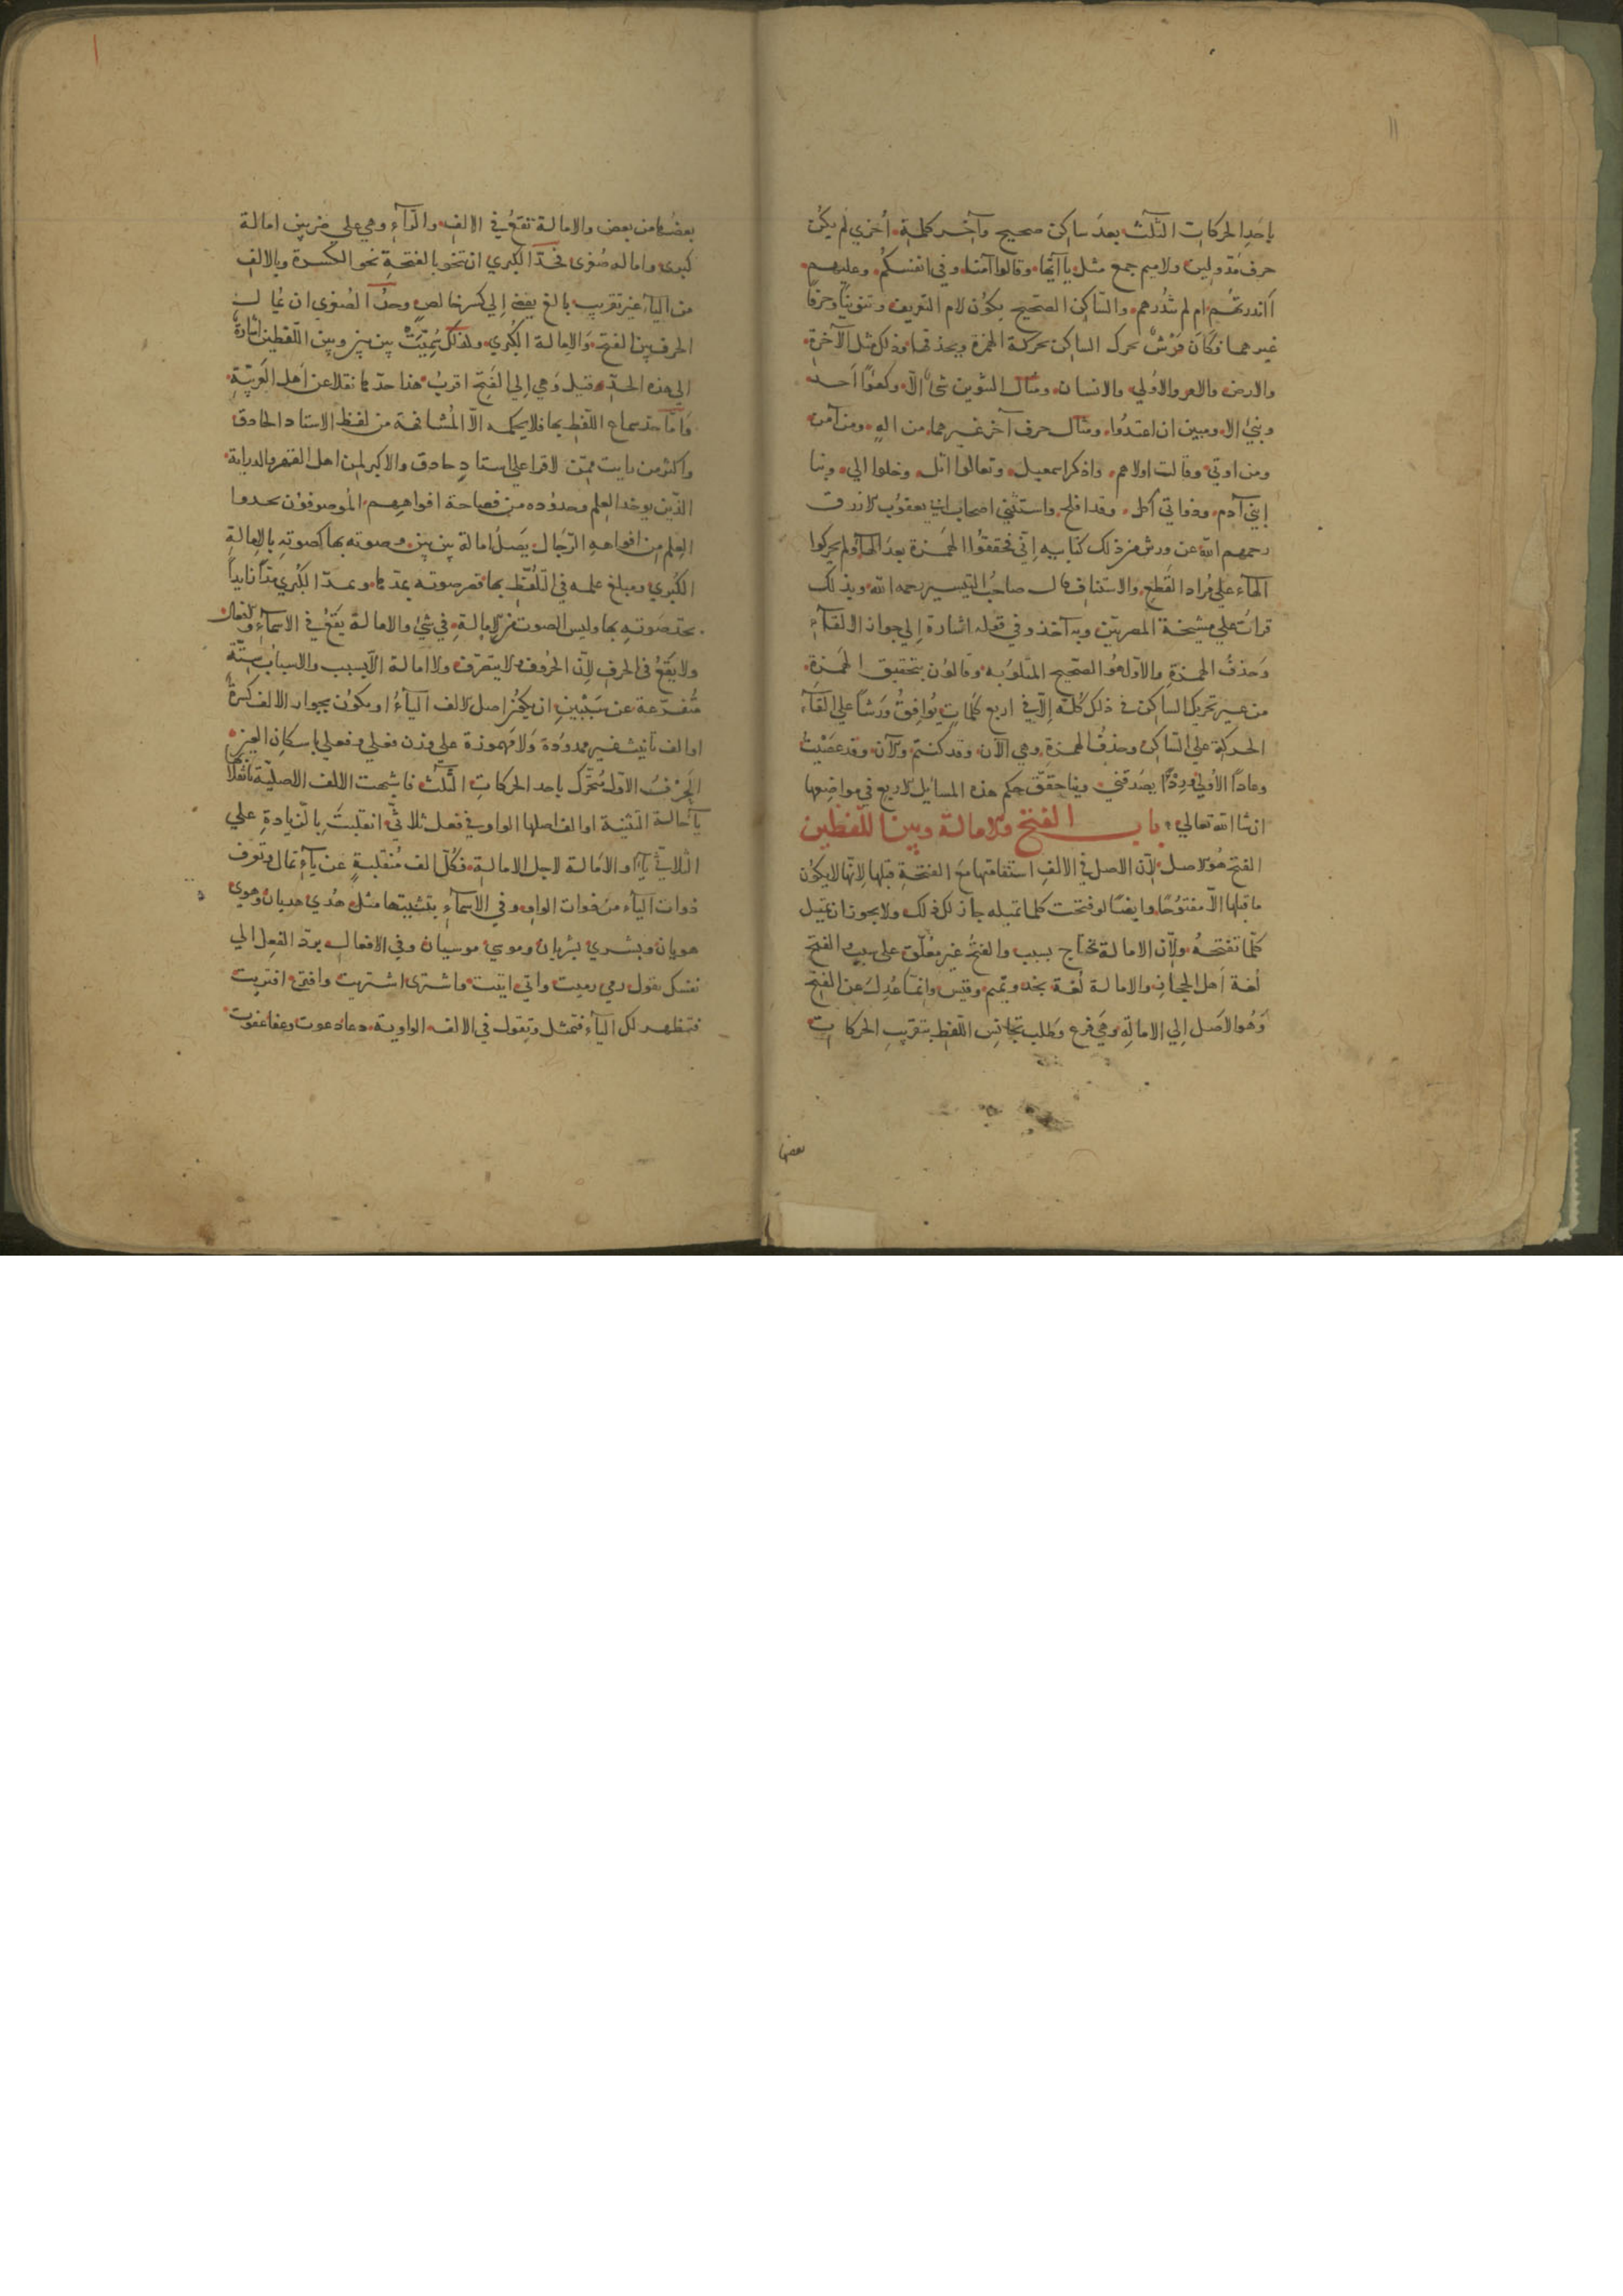 باحدِ الحركات الثّلث بعدَ ساكن صحيح وآخر كلمة أخري لم يكن
حرف مدّ ولين ولا ميم جمع مثل يا أيّها وقالوا آمنّا وفي انفسكُم وعليهم
أانذرتهُم ام لم تنذرهم والسّاكن الصحيح يكون لام التعريف وتنوينًا وحرفًا
غيرهما فكانَ وَرْشٌ يحرك الساكن بحركة الهمزة ويحذفها وذلك مثل الآخرة
والارض والامر والاولي والانسان ومثال التنوين شئ الّا وكفوًا احد
وبنيُ الا ومبين ان اعبدُوا ومثال حرف آخر غيرهما من الهٍ ومن آمن
ومن اوتي وقالت اولاهم واذكر اسمعيل وتعالوا اتل وخلوا الي ونبا
إبني آدم وذواتي أكل وقد افلح واستثني اصحاب ابي يعقوب الازرق
رحمهم الله عن ورش من ذلك كتابيه إنّي فحققوا الهمزة بعدَ الهاء ولم يحركوا
الهاء علي مُراد القطع والاستئناف قال صاحبُ التيسير رحمه الله وبذلك
قراتُ علي مشيخة المصريّين وبه آخذ وفي قوله اشارة إلي جواز الالقاءِ
وَحذفُ الهمزةِ والاول هُوَ الصّحيح المتلوّ به وقالون بتحقيق الهمزة
من غير تحريك الساكن في ذلك كُلّه إلّا في اربع كلمات يُوافقُ وَرشًا علي القاءِ
الحركة علي السّاكن وحذفُ الهمزةِ وهي الآن وقد كنتم والآن وقد عَصَيْتَ
وعادًا الأولي ورِدْءًا يصَدقني وسنحقّق حكم هذه المسائل الاربع في مواضعها
ان شا الله تعالي باب الفتح والامالة وبين اللفظين
الفتح هُوَ الاصل لانّ الاصل في الالفِ استقامتها معَ الفتحةِ قبلها لانّها لا يكُون
ما قبلها الّا مفتوُحًا وايضًا لو فتحت كلما تميله جاز لك ذلك ولا يجوز ان تميل
كلّما تفتحهُ ولانّ الامالة تحتاج بسبب والفتحُ غير مُعلّق علي سبب والفتح
لُغة أهل الحجاز والامالة لُغة نجد وتميم وقيس وانّما عُدِل عن الفتح
وَهُو الأصل إلي الامالةِ وهي فرع وطلب تجانس اللفظ بتقريبِ الحركاتِ
بعضها
بعضُها من بعض والامالة تقعُ في الالفِ والرّآء وهي علي ضربين امالة
كبري وامالة صُغري فحَدّ الكبري ان تنحو بالفتحةِ نحو الكسرة وبالالف
من الياءِ غير تقريب بالغ يفضي إلي كسر خالصٍ وحدُّ الصُغري ان تمال
الحرف بين الفتح وَالامالة الكُبري ولذلك سُمِّيَتْ بين بين وبين اللّفظين اشارة
الي هذه الحدّ وقيل وَهي إلي الفتح اقربُ هذا حدّها نقلا عن أهل العربيّة
وَامّا حدّ سماع اللفظ بها فلا يحكمه الّا المُشافهة من لفظ الاستاد الحادق
واكثر من رايت ممّن لا قرا علي استادٍ حادق والاكبر لمن اهل الفهم والدراية
الّذين يوخذ العِلم وحدُوده من فصاحة افواههم الموصوفوُن
العِلم من افواهِ الرّجال يَصلُ امالة بين بين وصوته بها كصوته بالامالةِ
الكُبري ومبلغ علمه في التلفّظ بها قصر صوته بمدّها ومدّ الكُبري مدًّا زايدًا
بحدّ صَوتهِ بها وليس الصوت من الامالةِ في شئ والامالة يقعُ في الاسماءِ والافعال
ولا يقعُ في الحرفِ لانّ الحرُوف لا يتصرّف ولا امالة الّا بسبب والاسبابُ ستّة
مُتفرّعة عن سَبَبْينِ ان يكون اصل الالف الياءُ او يكون بجوار الالف كسرةٌ
او الف تأنيث غير ممدوُدة وَلا مَهموزة علي وزن فعلي وفعلي باسكان العين
الحرفُ الاوّل مُتحرّك باحد الحركاتِ الثّلث فاشبهت الالف الاصليّة بانقلابها
ياءً حالة التثنية او الف اصلها الواو في فعل ثلاثيّ انقلبتْ بالزيادةِ علي
الثلاثيّ ياءً او الامالة لاجل الامالةِ فكلّ الف مُنقلبةٍ عن ياءٍ تمال وتعرف
ذوات الياء من ذوات الواو وفي الأسمآءِ بتثنيتها مثل هُدي هديان وهوي
هويان وبشري بشريان وموسي موسيان وفي الافعال بردّ الفعل الي
نفسك تقول رمي رميت واتي اتيت واشتري اشتريت وافتري افتريت
فتظهر لك الياءُ فتمثل وتقول في الالف الواوية دعا دعوت وعفا عفوت